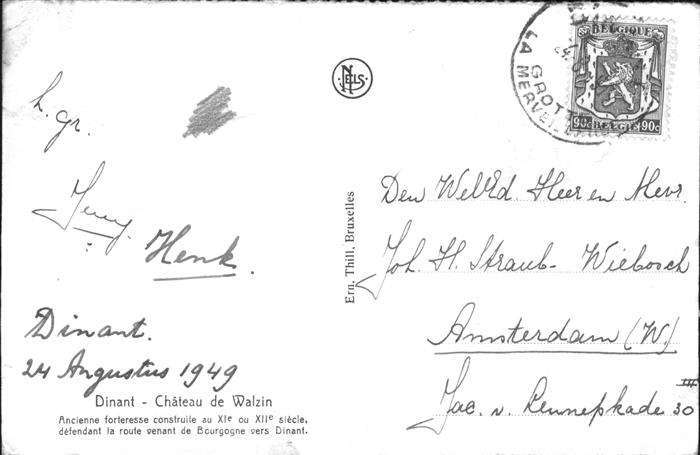 h. gr.
Jenny
Henk.
Dinant.
24 Augustus 1949
Dinant - Château de Walzin
Ancienne forteresse construite au XIe ou XIIe siècle,
défendant la route venant de Bourgogne vers Dinant.
NELS
Ern. Thill, Bruxelles
LA GROTTE
MERVEI
BELGIQUE
90c BELGIË 90c
Den WelEd. Heer en Mevr.
Joh. H. Straub - Wiebosch
Amsterdam (W.)
Jac. v. Lennepkade 30
III